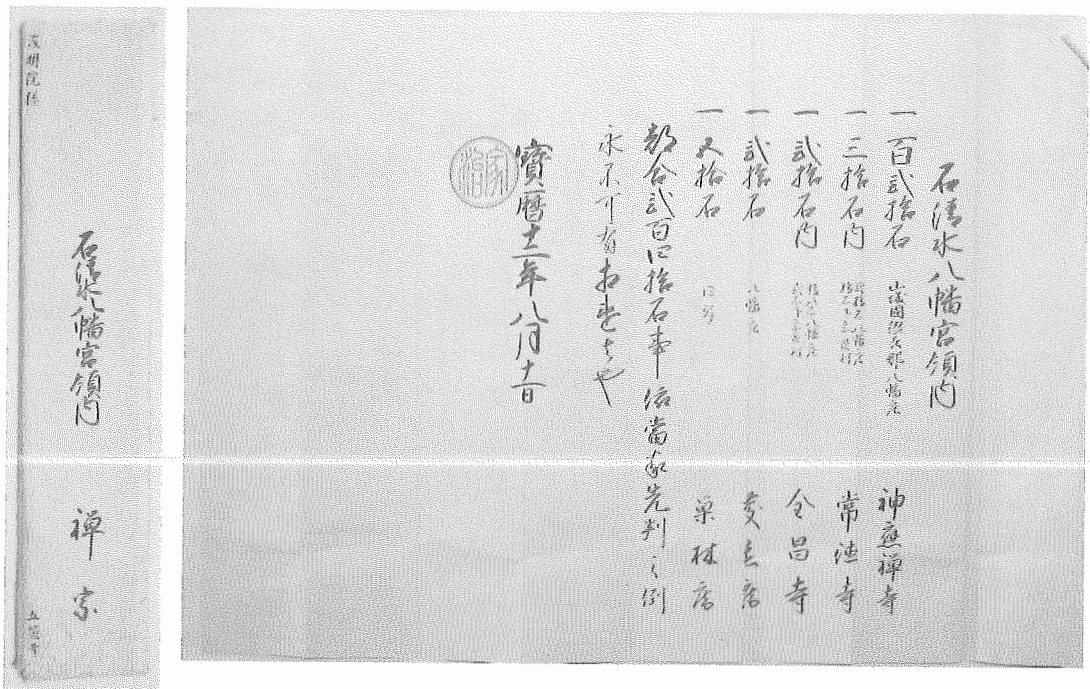 石清水八幡宮領内
一百弐拾石 山城國綴喜郡八幡庄 神應禅寺
一三拾石内 常徳寺
一弐拾石内 全昌寺
一弐拾石 八幡庄
一五拾石 同所 巣林庵
都合弐百四拾石事依當家先判之例
永不可有相違者也
寶暦十二年八月十一日
家治
浚明院様
石清水八幡宮領内 禅宗
五箇寺